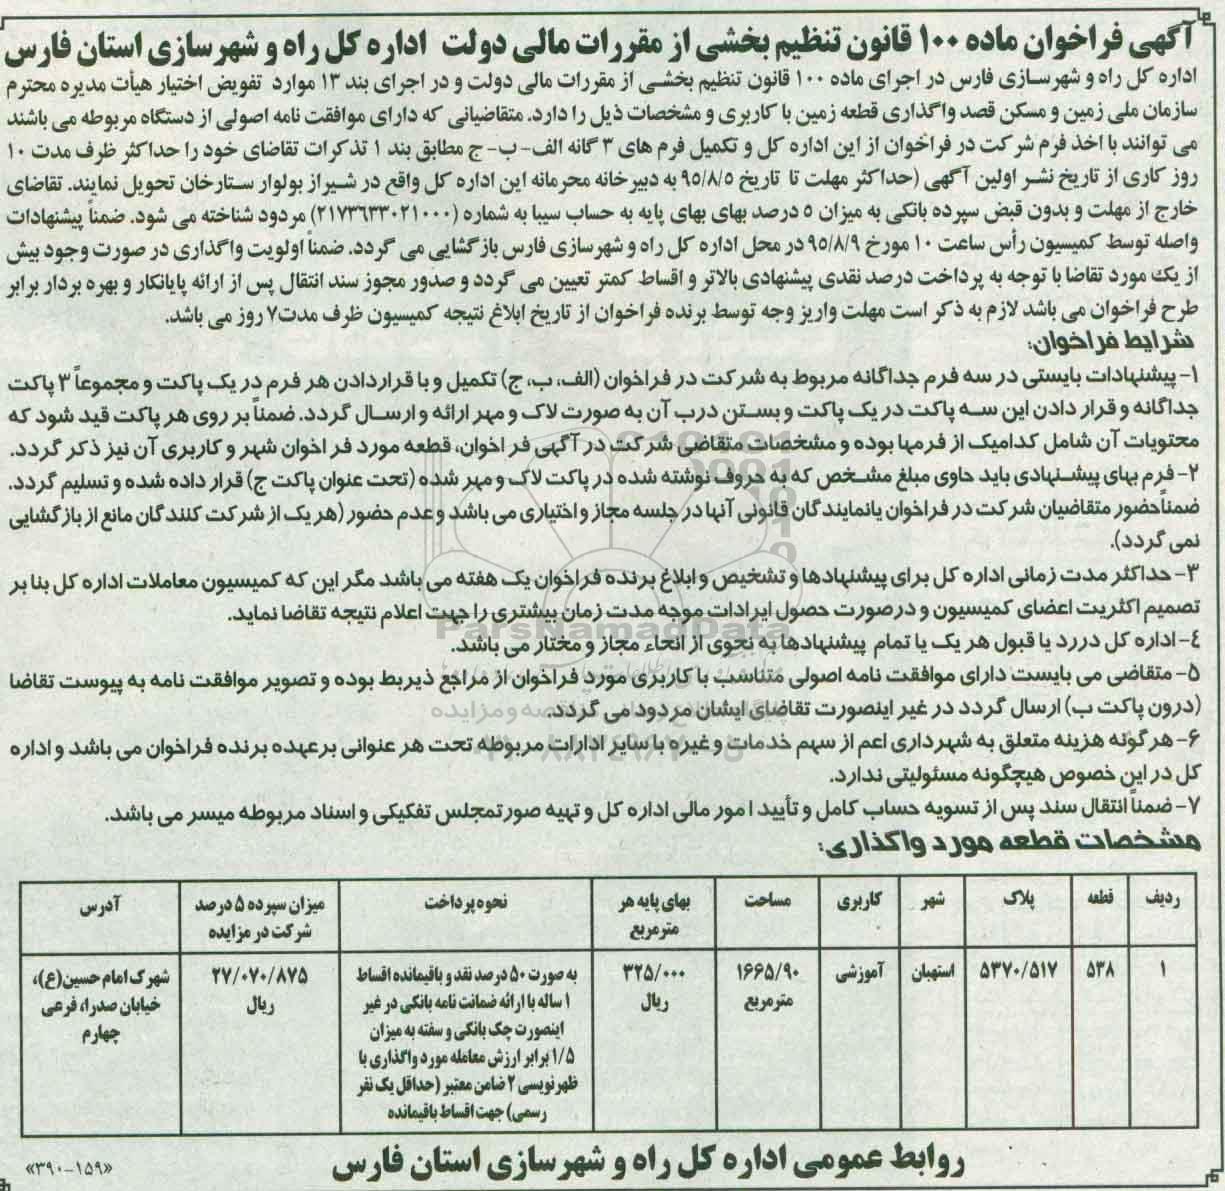 آگهی فراخوان ماده ۱۰۰ قانون تنظیم بخشی از مقررات مالی دولت اداره کل راه و شهرسازی استان فارس
اداره کل راه و شهرسازی فارس در اجرای ماده ۱۰۰ قانون تنظیم بخشی از مقررات مالی دولت و در اجرای بند ۱۳ موارد تفویض اختیار هیأت مدیره محترم
سازمان ملی زمین و مسکن قصد واگذاری قطعه زمین با کاربری و مشخصات ذیل را دارد. متقاضیانی که دارای موافقت نامه اصولی از دستگاه مربوطه می باشند
می توانند با اخذ فرم شرکت در فراخوان از این اداره کل و تکمیل فرم های ۳ گانه الف- ب- ج مطابق بند ۱ تذکرات تقاضای خود را حداکثر ظرف مدت ۱۰
روز کاری از تاریخ نشر اولین آگهی (حداکثر مهلت تا تاریخ ۹۵/۸/۵ به دبیرخانه محرمانه این اداره کل واقع در شیراز بولوار ستارخان تحویل نمایند. تقاضای
خارج از مهلت و بدون قبض سپرده بانکی به میزان ۵ درصد بهای بهای پایه به حساب سیبا به شماره (۲۱۷۳۶۳۳۰۲۱۰۰۰) مردود شناخته می شود. ضمناً پیشنهادات
واصله توسط کمیسیون رأس ساعت ۱۰ مورخ ۹۵/۸/۹ در محل اداره کل راه و شهرسازی فارس بازگشایی می گردد. ضمناً اولویت واگذاری در صورت وجود بیش
از یک مورد تقاضا با توجه به پرداخت درصد نقدی پیشنهادی بالاتر و اقساط کمتر تعیین می گردد و صدور مجوز سند انتقال پس از ارائه پایانکار و بهره بردار برابر
طرح فراخوان می باشد لازم به ذکر است مهلت واریز وجه توسط برنده فراخوان از تاریخ ابلاغ نتیجه کمیسیون ظرف مدت۷ روز می باشد.
شرایط فراخوان:
۱- پیشنهادات بایستی در سه فرم جداگانه مربوط به شرکت در فراخوان (الف، ب، ج) تکمیل و با قراردادن هر فرم در یک پاکت و مجموعاً ۳ پاکت
جداگانه و قرار دادن این سه پاکت در یک پاکت و بستن درب آن به صورت لاک و مهر ارائه و ارسال گردد. ضمناً بر روی هر پاکت قید شود که
محتویات آن شامل کدامیک از فرمها بوده و مشخصات متقاضی شرکت در آگهی فراخوان، قطعه مورد فراخوان شهر و کاربری آن نیز ذکر گردد.
۲- فرم بهای پیشنهادی باید حاوی مبلغ مشخص که به حروف نوشته شده در پاکت لاک و مهر شده (تحت عنوان پاکت ج) قرار داده شده و تسلیم گردد.
ضمناًحضور متقاضیان شرکت در فراخوان یانمایندگان قانونی آنها در جلسه مجاز و اختیاری می باشد و عدم حضور (هر یک از شرکت کنندگان مانع از بازگشایی
نمی گردد).
۳- حداکثر مدت زمانی اداره کل برای پیشنهادها و تشخیص و ابلاغ برنده فراخوان یک هفته می باشد مگر این که کمیسیون معاملات اداره کل بنا بر
تصمیم اکثریت اعضای کمیسیون و درصورت حصول ایرادات موجه مدت زمان بیشتری را جهت اعلام نتیجه تقاضا نماید.
۴- اداره کل دررد یا قبول هر یک یا تمام پیشنهادها به نحوی از انحاء مجاز و مختار می باشد.
۵- متقاضی می بایست دارای موافقت نامه اصولی متناسب با کاربری مورد فراخوان از مراجع ذیربط بوده و تصویر موافقت نامه به پیوست تقاضا
(درون پاکت ب) ارسال گردد در غیر اینصورت تقاضای ایشان مردود می گردد.
۶- هرگونه هزینه متعلق به شهرداری اعم از سهم خدمات و غیره با سایر ادارات مربوطه تحت هر عنوانی برعهده برنده فراخوان می باشد و اداره
کل در این خصوص هیچگونه مسئولیتی ندارد.
۷- ضمناً انتقال سند پس از تسویه حساب کامل و تأیید امور مالی اداره کل و تهیه صورتمجلس تفکیکی و اسناد مربوطه میسر می باشد.
مشخصات قطعه مورد واگذاری:
ردیف قطعه پلاک شهر کاربری مساحت بهای پایه هر مترمربع نحوه پرداخت میزان سپرده ۵ درصد شرکت در مزایده آدرس
۱ ۵۳۸ ۵۳۷۰/۵۱۷ استهبان آموزشی ۱۶۶۵/۹۰ مترمربع ۳۲۵/۰۰۰ ریال
به صورت ۵۰ درصد نقد و باقیمانده اقساط
۱ ساله با ارائه ضمانت نامه بانکی در غیر
اینصورت چک بانکی و سفته به میزان
۱/۵ برابر ارزش معامله مورد واگذاری با
ظهرنویسی ۲ ضامن معتبر (حداقل یک نفر
رسمی) جهت اقساط باقیمانده
۲۷/۰۷۰/۸۷۵
ریال
شهرک امام حسین(ع)،
خیابان صدرا، فرعی
چهارم
روابط عمومی اداره کل راه و شهرسازی استان فارس
«۳۹۰-۱۵۹»
ParsNamadData